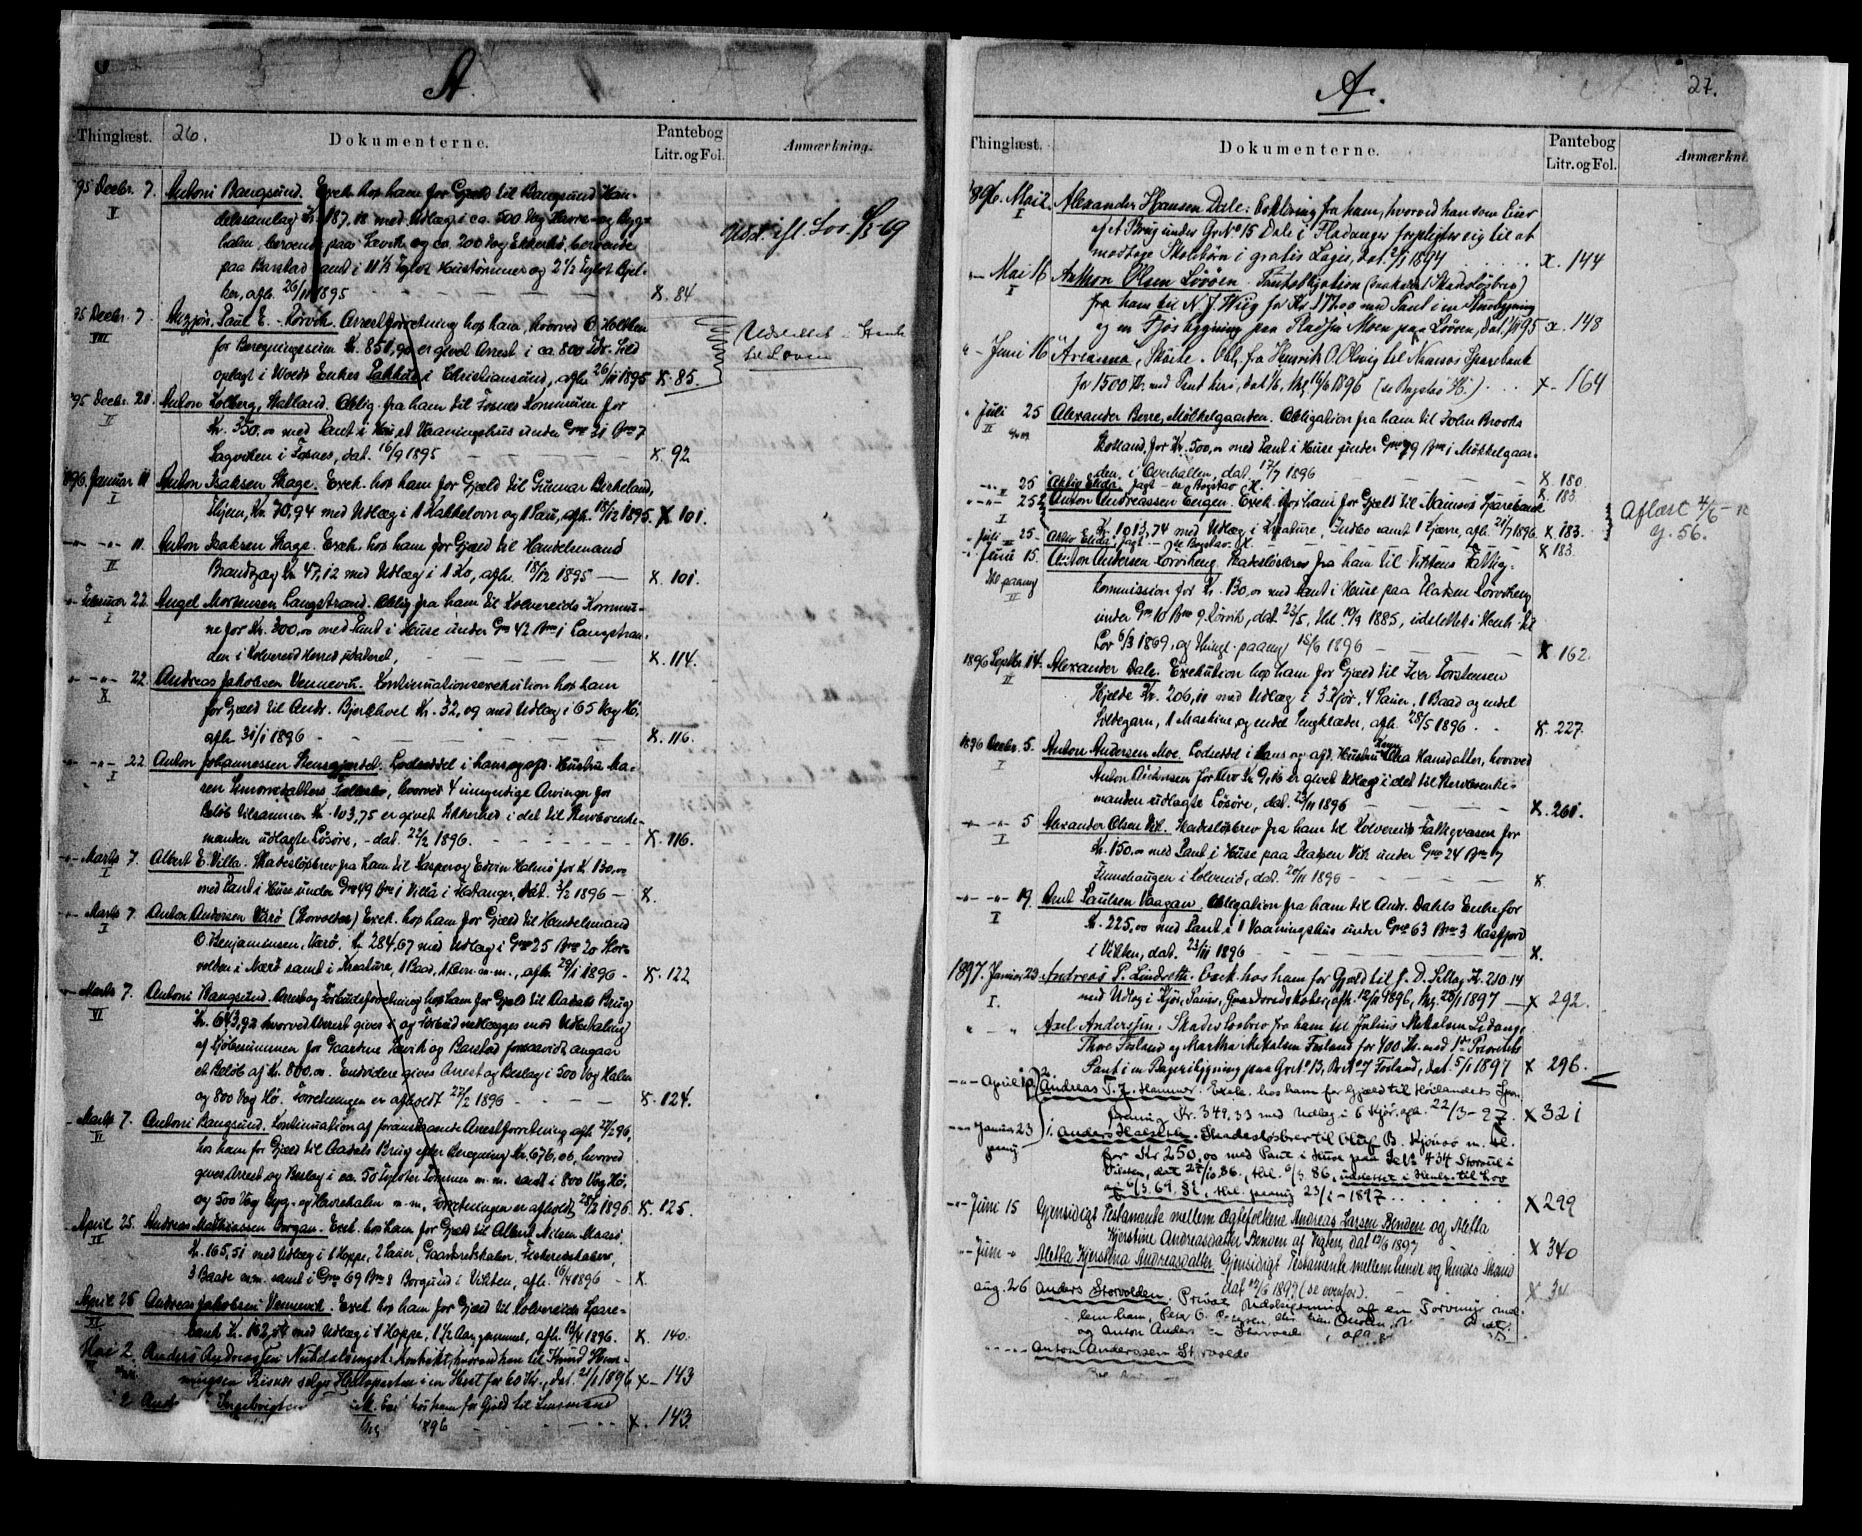 A.
Thinglæst.
26.
Dokumenterne.
Pantebog
Litr. og Fol.
Anmærkning.
95 Decbr. 7. Antoni Bangsund. Exek. hos ham for Gjæld til Bangsund Han-
I
delssamlag Kr. 187,18 med Udlæg i ca. 500 Vog Havre- og Byg-
halm, beroende paa Lavik og ca. 200 Vog Ekkerhø, beroende
paa Barstad samt i 11½ Tylvt Hustømmer og 2½ Tylvt
afh. 26/11 1895 X. 84
Udsl. ifl. Lov 6/3-69
95 Decbr. 7. Paul E. Rörvik. Arrestforretning hos ham, hvorved O. Holthen
VIII
for Beregningssum Kr. 851,90 er givet Arrest i ca. 800 Tdr. Sild
oplagt i Wolds Enkes Pakhus i Christiansund, afh. 26/11 1895 X. 85.
Udslettet i Henh.
til Loven
95 Decbr. 21. Anton Kolberg, Halland. Oblig. fra ham til Fosnes Kommune for
II
Kr. 350,00 med Pant i Hus, et Vaaningshus under Gno 31 Bno 7
Lagviken i Fosnes, dat. 16/9 1895 X. 92
1896 Januar 11 Anton Isaksen Skage. Exek. hos ham for Gjæld til Gunnar Birkeland,
I
Kr. 70,94 med Udlæg i 1 Kakkelovn og 1 Sau, afh. 18/12 1895. X. 101.
11. Anton Isaksen Skage. Exek. hos ham for Gjæld til Handelsmand
II
Brandtzæg Kr. 47,12 med Udlæg i 1 Ko, afh. 18/12 1895 X. 101.
Februar 22. Angel Mortensen Langstrand. Oblig. fra ham til Kolvereids Kommu-
I
ne for Kr. 300,00 med Pant i Huse under Gno 42 Bno 1 Langstran-
den i Kolvereid Herred udateret, X. 114.
22. Andreas Jakobsen Vennevik. Kontinuationsexekution hos ham
X
for Gjæld til Andr. Bjørhvel Kr. 32,09 med Udlæg i 65 Vog Hø,
afh 31/1 1896 X. 116.
22. Anton Johannessen Stensgjerdet. Lodseddel i hans og afd. Hustru Ma-
I
ren Simonsdatters Fællesbo, hvorved 4 umyndige Arvinger for
Beløb tilsammen Kr. 103,75 er givet Sikkerhed i det til Stervboenke-
manden udlagte Lösöre, dat. 22/2 1896. X. 116.
Marts 7. Albert E. Villa. Skadesløsbrev fra ham til Kasper og Edvin Halmö for Kr. 130,00
I
med Pant i Huse under Gno 49 Bno 1 Villa i Flatanger, dat. 3/2 1896 X.
Marts 7. Anton Andersen Værø (Storvolden) Exek. hos ham for Gjæld til Handelsmand
I
O. Benjaminsen, Værö, Kr. 284,67 med Udlæg i Gno 25 Bno 20 Stor-
volden i Nærö samt i Kreature, 1 Baad, m.m., afh. 29/1 1896 X. 122
Marts 7. Antoni Bangsund. Arrest og Forbudsforretning hos ham for Gjæld til Aadals Brug
VI
Kr. 643,92 hvorved Arrest gives i og Forbud nedlægges mod Udbetaling
af Kjöbesummen for Gaardene Lavik og Barstad forsaavidt angaar
et Beløb af Kr. 800,00. Endvidere gives Arrest og Beslag i 500 Vog Halm
og 800 Vog Hö. Forretningen er afholdt 27/2 1896 X. 124.
Marts 7. Antoni Bangsund. Kontinuation af foranstaaende Arrestforretning afh 27/2 96,
VI
hos ham for Gjæld til Aadals Brug efter Beregning Kr. 676,06, hvorved
gives Arrest og Beslag i ca. 50 Tylvter Tømmer m. m. samt i 800 Vog Hö,
og 500 Vog Byg- og Havrehalm m. m. Forretningen er afholdt 28/2 1896 X. 125.
April 25. Andreas Mathiassen Borgan. Exek. hos ham for Gjæld til Albert Nilsen Maasö
II
Kr. 165,51 med Udlæg i 1 Hoppe, 2 Sauer, Gaardsredskaber, Fiskeredskaber,
3 Baade m.m. samt i Gno 69 Bno 8 Borgund i Vikten, afh. 16/4 1896 X.
April 25 Andreas Jakobsen Vennevik. Exek. hos ham for Gjæld til Kolvereids Spare-
VI
bank Kr. 162,54 med Udlæg i 1 Hoppe, 1½ Aar gammel, afh. 18/4 1896. X. 140.
Mai 2. Anders Andreassen Kontrakt, hvorved han til Knud Hem-
mingsen i en Hest for 60 Kr., dat. 21/1 1896 X. 143
2 Ingebrigtsen Exe hos ham for Gjæld til
1896 X. 143.
A.
27.
Thinglæst.
Dokumenterne.
Pantebog
Litr. og Fol.
Anmærkn
1896. Mai 2. Alexander Hansen Dale: Erklæring fra ham, hvorved han som Eier
I
af et Brug under Gr No 15 Dale i Fladanger forpligter sig til at
modtage Skolebörn i gratis Logis, dat. 2/1 1894 X. 144
Mai 16 Anthon Olsen Lövöen. Pantobligation (Skadeslösbrev)
I
fra ham til N. J. Wiig for Kr. 177.00 med Pant i en Stuebygning
og en Fjös bygning paa Pladsen Moen paa Lövöen, dat. 1/11 95 X. 148
Juni 16 "Arianna", Sköite. Obl. fra Henrik O. Olsvig til Namsos Sparebank
for 1500 Kr. med Pant heri, dat. 1/6, thgl. 16/6 1896 (se Bogstav H.) X. 164
Juli 25 Alexander Berre, Mölkelgaarden. Obligation fra ham til John Brooks
II
Skotland, for Kr. 500,00 med Pant i Huse under Gno 79 Bno 1 Mökkelgaar-
den i Overhallen, dat. 17/7 1896 X. 180.
25 Aktie Elida, Jagt - se Bogstav H. X. 183.
25 Anton Andreassen Engen. Exek. hos ham for Gjæld til Namsos Sparebank
I
Kr. 1013,74 med Udlæg i Kreature, Indbo samt 1 Kjærre, afh. 21/7 1896. X. 183.
Aflæst 4/6
g. 56.
Juli 25 Elida, Jagt - se Bogstav H. X. 183.
Juni 15. Anton Andersen Lorvikeng. Skadeslösbrev fra ham til Viktens Fattig-
Ibl paany
II
kommission for Kr. 130,00 med Pant i Huse paa Pladsen Lorvikeng
under Gno 10 Bno 9 Rörvik, dat. 23/5, thl. 10/9 1885, udslettet i Henh. til
Lov 6/3 1869, og thingl. paany 15/6 1896 X. 162.
1896 Septbr. 14. Alexander Dale. Exekution hos ham for Gjæld til Iver Torstensen
II
Kjelde Kr. 206,10 med Udlæg i 3 Kjör, 4 Sauer, 1 Baad og endel
Sildegarn, 1 Maskine, og endel Sengklæder, afh. 28/5 1896 X. 227.
1896 Decbr. 5. Anton Andersen Moe. Lodseddel i hans og afd. Hustru Hansdatter, hvorved
I
Anton Antonsen for Arv Kr. er givet Udlæg i det til Stervboenke-
manden udlagte Lösöre, dat. 23/11 1896 X. 261.
5 Alexander Olsen Vik. Skadeslösbrev fra ham til Kolvereids Fattigvæsen for
I
Kr. 150.00 med Pant i Huse paa Pladsen Vik under Gno 24 Bno 7
Finnehaugen i Kolvereid, dat. 20/11 1896 X.
19. Arnt Paulsen Vaagan. Obligation fra ham til Andr. Dahls Enke for
I
Kr. 225,00 med Pant i 1 Vaaningshus under Gno 63 Bno 3 Hasfjord
i Vikten, dat. 23/11 1896 X.
1897. Januar 23. Andreas P. Lindseth. Exek. hos ham for Gjæld til J. D. Sellæg Kr. 210.14
I.
med Udlæg i Kjör, Sauer, Gaardsredskaber, afh. 12/11 1896, thg. 28/1 1897 X 292.
Axel Anderssen. Skadeslösbrev fra ham til Julius Mikalsen Lidange
Thore Fosland og Martha Mikalsen Fosland for 400 Kr. med 1ste Prioritets
Pant i en Bageribygning paa Gr No 13, Br No 7 Fosland, dat. 5/1 1897 X 296.
April 10 2. Andreas T. J. Hammer. Exek. hos ham for Gjæld til Höilandets Spa
Kr. 349,33 med Udlæg i 6 Kjör, afh. 22/3-97. X 321
Januar 23 1. Anders Skadeslösbrev til Oluf B. Kjönsö m. fl.
paany
for Kr 250,00 med Pant i Huse paa 434 i
Vikten, dat. 27/10 86, thl. 6/3 86, udslettet i Henh. til Lov
af 6/3 69, §1, thl. paany 23/1-1897 X 299
Juni 15 Gjensidigt Testamente mellem Ægtefolkene Andreas Larsen Benden og Aletta
Kjerstine Andreasdatter Benden af Vigten, dat 12/6 1897 X 340
Juni Aletta Kjerstina Andreasdatter. Gjensidigt Testamente mellem hende og hendes Mand
daf 12/6 1897 (se ovenfor). X 34
aug. 26 Anders Storvolden. Privat Udskiftning af en Torvmyr mel-
lem ham, Peter O.
og Anton Anders
Anton Anderssen St volde